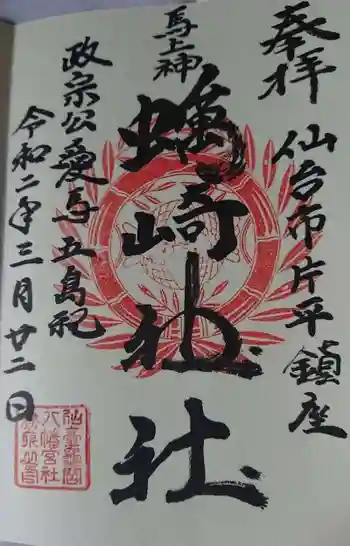 奉拝
仙台市片平鎮座
馬上神
蠣崎神社
政宗公愛馬五島祀
令和二年三月廿二日
仙臺龜岡
八幡宮社